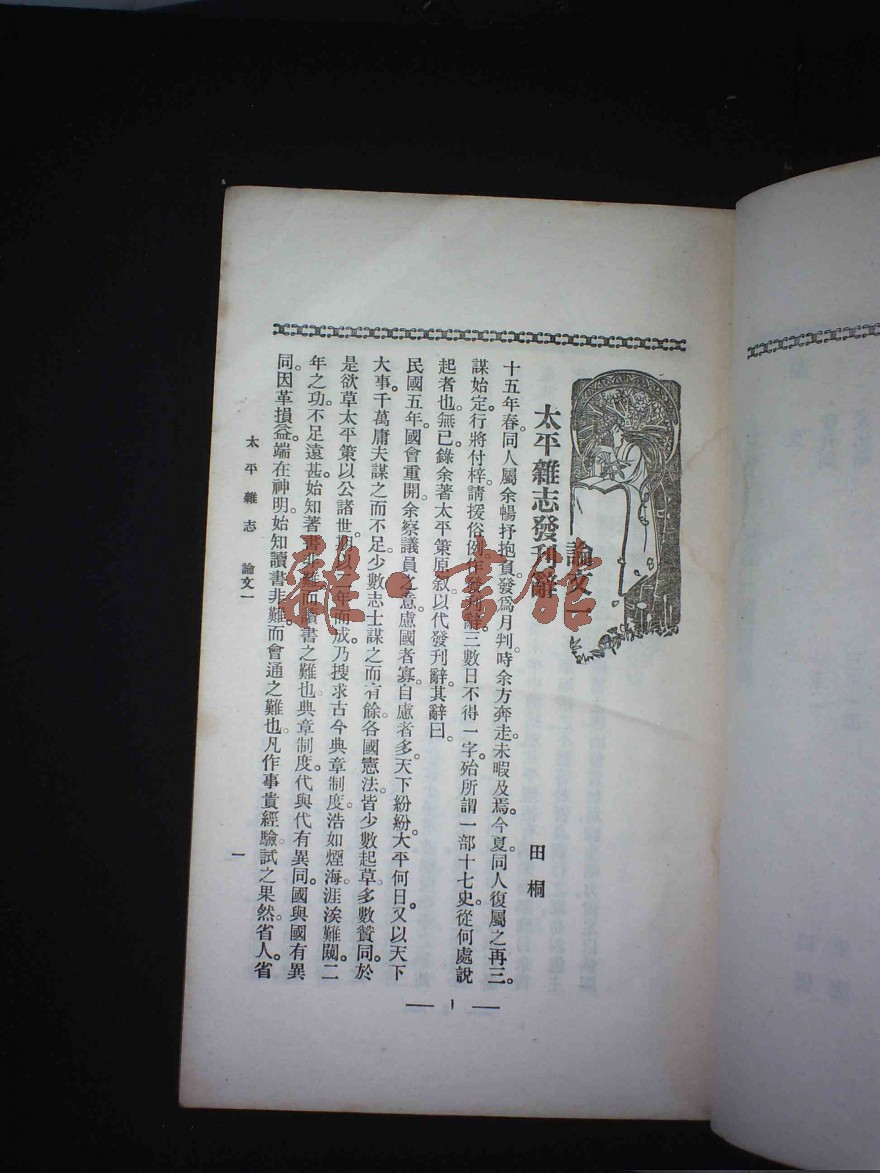 論文一
太平雜志發刊辭
田桐
十五年春。同人屬余暢抒抱負。發爲月刊。時余方奔走未暇及焉。今夏。同人復屬之再三。
謀始定。行將付梓。請援俗例作發刊辭。三數日不得一字。殆所謂一部十七史。從何處說
起者也。無已。錄余著太平策原叙以代發刊辭。其辭曰。
民國五年。國會重開。余察議員之意。慮國者寡。自慮者多。天下紛紛。大平何日。又以天下
大事。千萬庸夫謀之而不足。少數志士謀之而有餘。各國憲法。皆少數起草。多數贊同。於
是欲草太平策以公諸世。期以二年而成。乃搜求古今典章制度。浩如煙海。涯涘難闚。二
年之功。不足遠甚。始知著書非難而讀書之難也。典章制度。代與代有異同。國與國有異
同。因革損益。端在神明。始知讀書非難而會通之難也。凡作事貴經驗。試之果然。省人。省
太平雜志 論文一
一
— 1 —
雜·書館